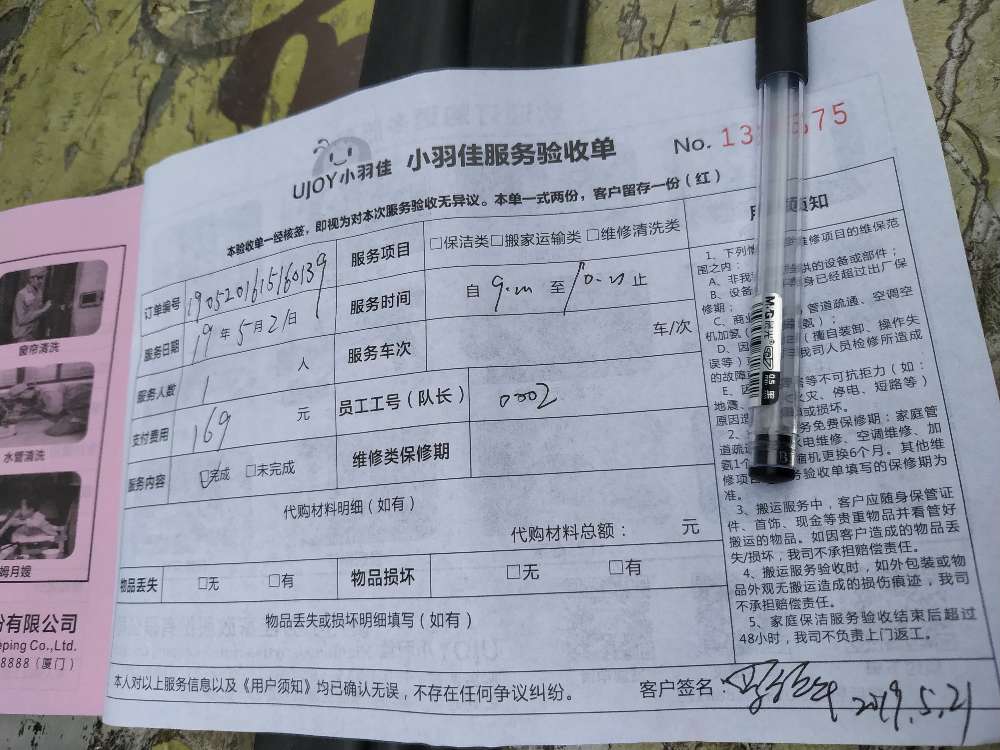 UJOY小羽佳 小羽佳服务验收单 No.
本验收单一经核签，即视为对本次服务验收无异议。本单一式两份，客户留存一份（红）
订单编号 1905201615160139 服务项目 □保洁类□搬家运输类□维修清洗类
服务日期 19年5月21日 服务时间 自 至 止
服务人数 1 人 服务车次 车/次
支付费用 169 元 员工工号（队长） 0002
服务内容 □完成 □未完成 维修类保修期
代购材料明细（如有）
代购材料总额： 元
物品丢失 □无 □有 物品损坏 □无 □有
物品丢失或损坏明细填写（如有）
本人对以上服务信息以及《用户须知》均已确认无误，不存在任何争议纠纷。 客户签名： 2019.5.21
须知
1、下列 维修项目的维保范
围之内：
A、非我 供的设备或部件；
B、设备 身已经超过出厂保
修期；
C、商业 管道疏通、空调空
机加氨
D、因 （擅自装卸、操作失
误等） 我司人员检修所造成
的故障
E、因 等不可抗拒力（如：
地震、 火灾、停电、短路等）
原因造 或损坏。
2、 务免费保修期：家庭管
道疏 水电维修、空调维修、加
氨1个 缩机更换6个月。其他维
修项 务验收单填写的保修期为
准。
3、搬运服务中，客户应随身保管证
件、首饰、现金等贵重物品并看管好
搬运的物品。如因客户造成的物品丢
失/损坏，我司不承担赔偿责任。
4、搬运服务验收时，如外包装或物
品外观无搬运造成的损伤痕迹，我司
不承担赔偿责任。
5、家庭保洁服务验收结束后超过
48小时，我司不负责上门返工。
窗帘清洗
水管清洗
姆月嫂
份有限公司
eping Co.,Ltd.
8888（厦门）